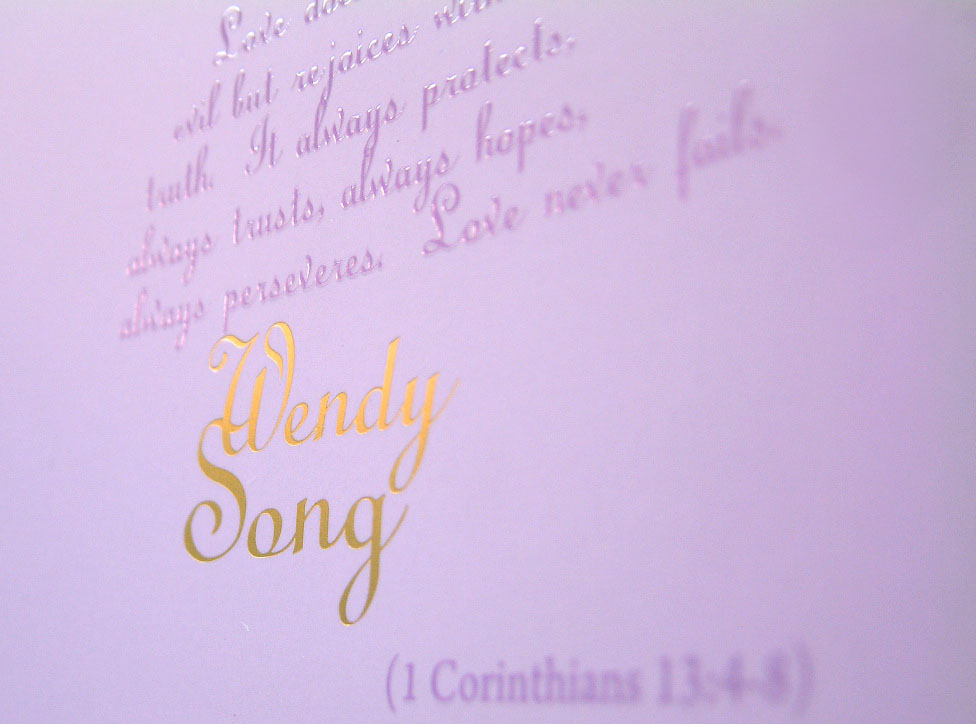 Love
evil but rejoices with
truth. It always protects,
always trusts, always hopes,
always perseveres. Love never fails.
Wendy
Song
(1 Corinthians 13:4-8)